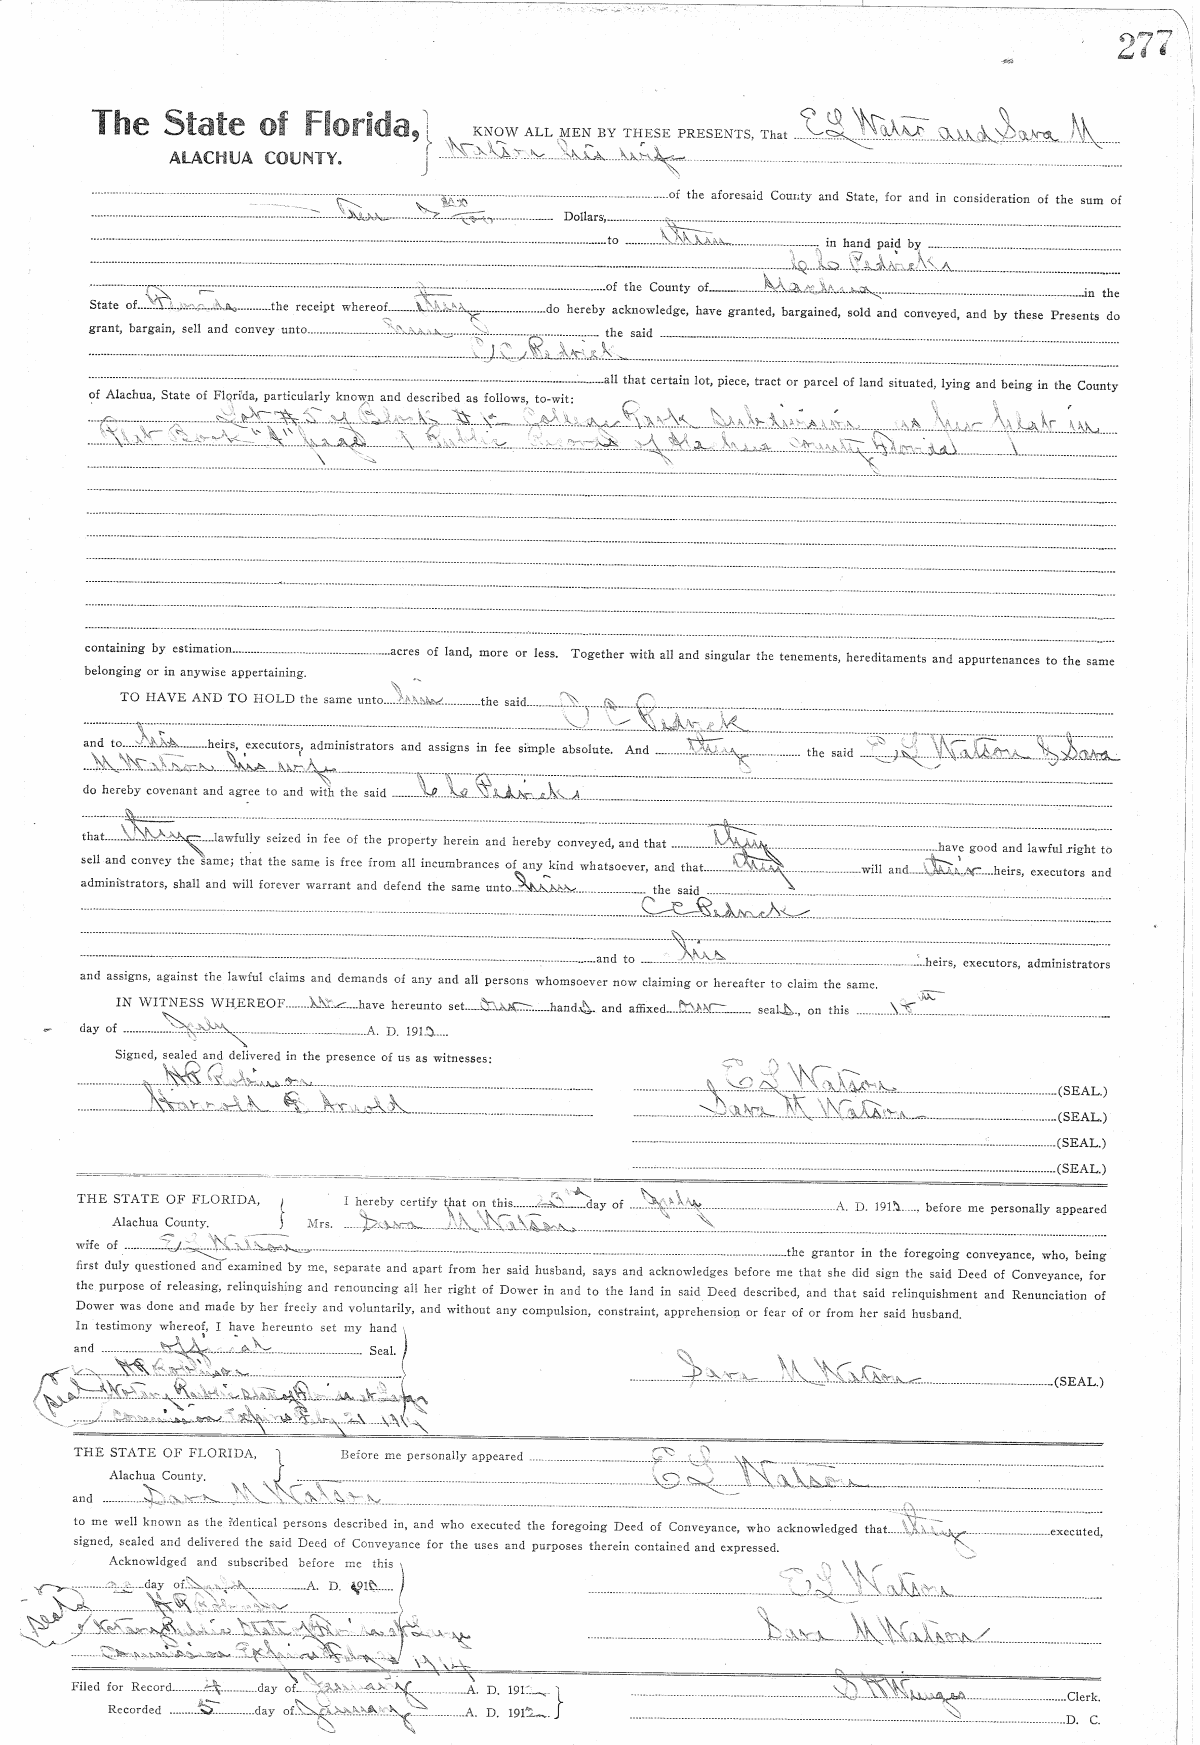 277
The State of Florida,
ALACHUA COUNTY.
KNOW ALL MEN BY THESE PRESENTS, That E L Watson and Sara M
Watson his wife
of the aforesaid County and State, for and in consideration of the sum of
Ten Dollars,
to them in hand paid by
C C Pedrick
of the County of Alachua in the
State of Florida the receipt whereof they do hereby acknowledge, have granted, bargained, sold and conveyed, and by these Presents do
grant, bargain, sell and convey unto the said
C C Pedrick
all that certain lot, piece, tract or parcel of land situated, lying and being in the County
of Alachua, State of Florida, particularly known and described as follows, to-wit:
Lot #5 of Block # College Park Subdivision as per plat in
Plat Book "A" page of Public Records of Alachua County Florida
containing by estimation acres of land, more or less. Together with all and singular the tenements, hereditaments and appurtenances to the same
belonging or in anywise appertaining.
TO HAVE AND TO HOLD the same unto him the said
C C Pedrick
and to his heirs, executors, administrators and assigns in fee simple absolute. And they the said E L Watson & Sara
M Watson his wife
do hereby covenant and agree to and with the said C C Pedrick
that they lawfully seized in fee of the property herein and hereby conveyed, and that they have good and lawful right to
sell and convey the same; that the same is free from all incumbrances of any kind whatsoever, and that they will and their heirs, executors and
administrators, shall and will forever warrant and defend the same unto him the said
C C Pedrick
and to his heirs, executors, administrators
and assigns, against the lawful claims and demands of any and all persons whomsoever now claiming or hereafter to claim the same.
IN WITNESS WHEREOF we have hereunto set our hands and affixed our seals, on this 18th
day of July A. D. 191
Signed, sealed and delivered in the presence of us as witnesses:
H R Robinson
Harrold G Arnold
E L Watson (SEAL.)
Sara M Watson (SEAL.)
(SEAL.)
(SEAL.)
THE STATE OF FLORIDA,
Alachua County.
I hereby certify that on this day of July A. D. 191 , before me personally appeared
Mrs. Sara M Watson
wife of E L Watson the grantor in the foregoing conveyance, who, being
first duly questioned and examined by me, separate and apart from her said husband, says and acknowledges before me that she did sign the said Deed of Conveyance, for
the purpose of releasing, relinquishing and renouncing all her right of Dower in and to the land in said Deed described, and that said relinquishment and Renunciation of
Dower was done and made by her freely and voluntarily, and without any compulsion, constraint, apprehension or fear of or from her said husband.
In testimony whereof, I have hereunto set my hand
and official Seal.
H R Robinson
Seal Notary Public State of Florida at Large
Commission Expires Feby 21 1914
Sara M Watson (SEAL.)
THE STATE OF FLORIDA,
Alachua County.
Before me personally appeared E L Watson
and Sara M Watson
to me well known as the identical persons described in, and who executed the foregoing Deed of Conveyance, who acknowledged that they executed,
signed, sealed and delivered the said Deed of Conveyance for the uses and purposes therein contained and expressed.
Acknowldged and subscribed before me this
day of July A. D. 191
H R Robinson
Seal Notary Public State of Florida at Large
Commission Expires Feby 1914
E L Watson
Sara M Watson
Filed for Record 4 day of January A. D. 1912
Recorded 5 day of January A. D. 1912
S H Wienges Clerk.
D. C.